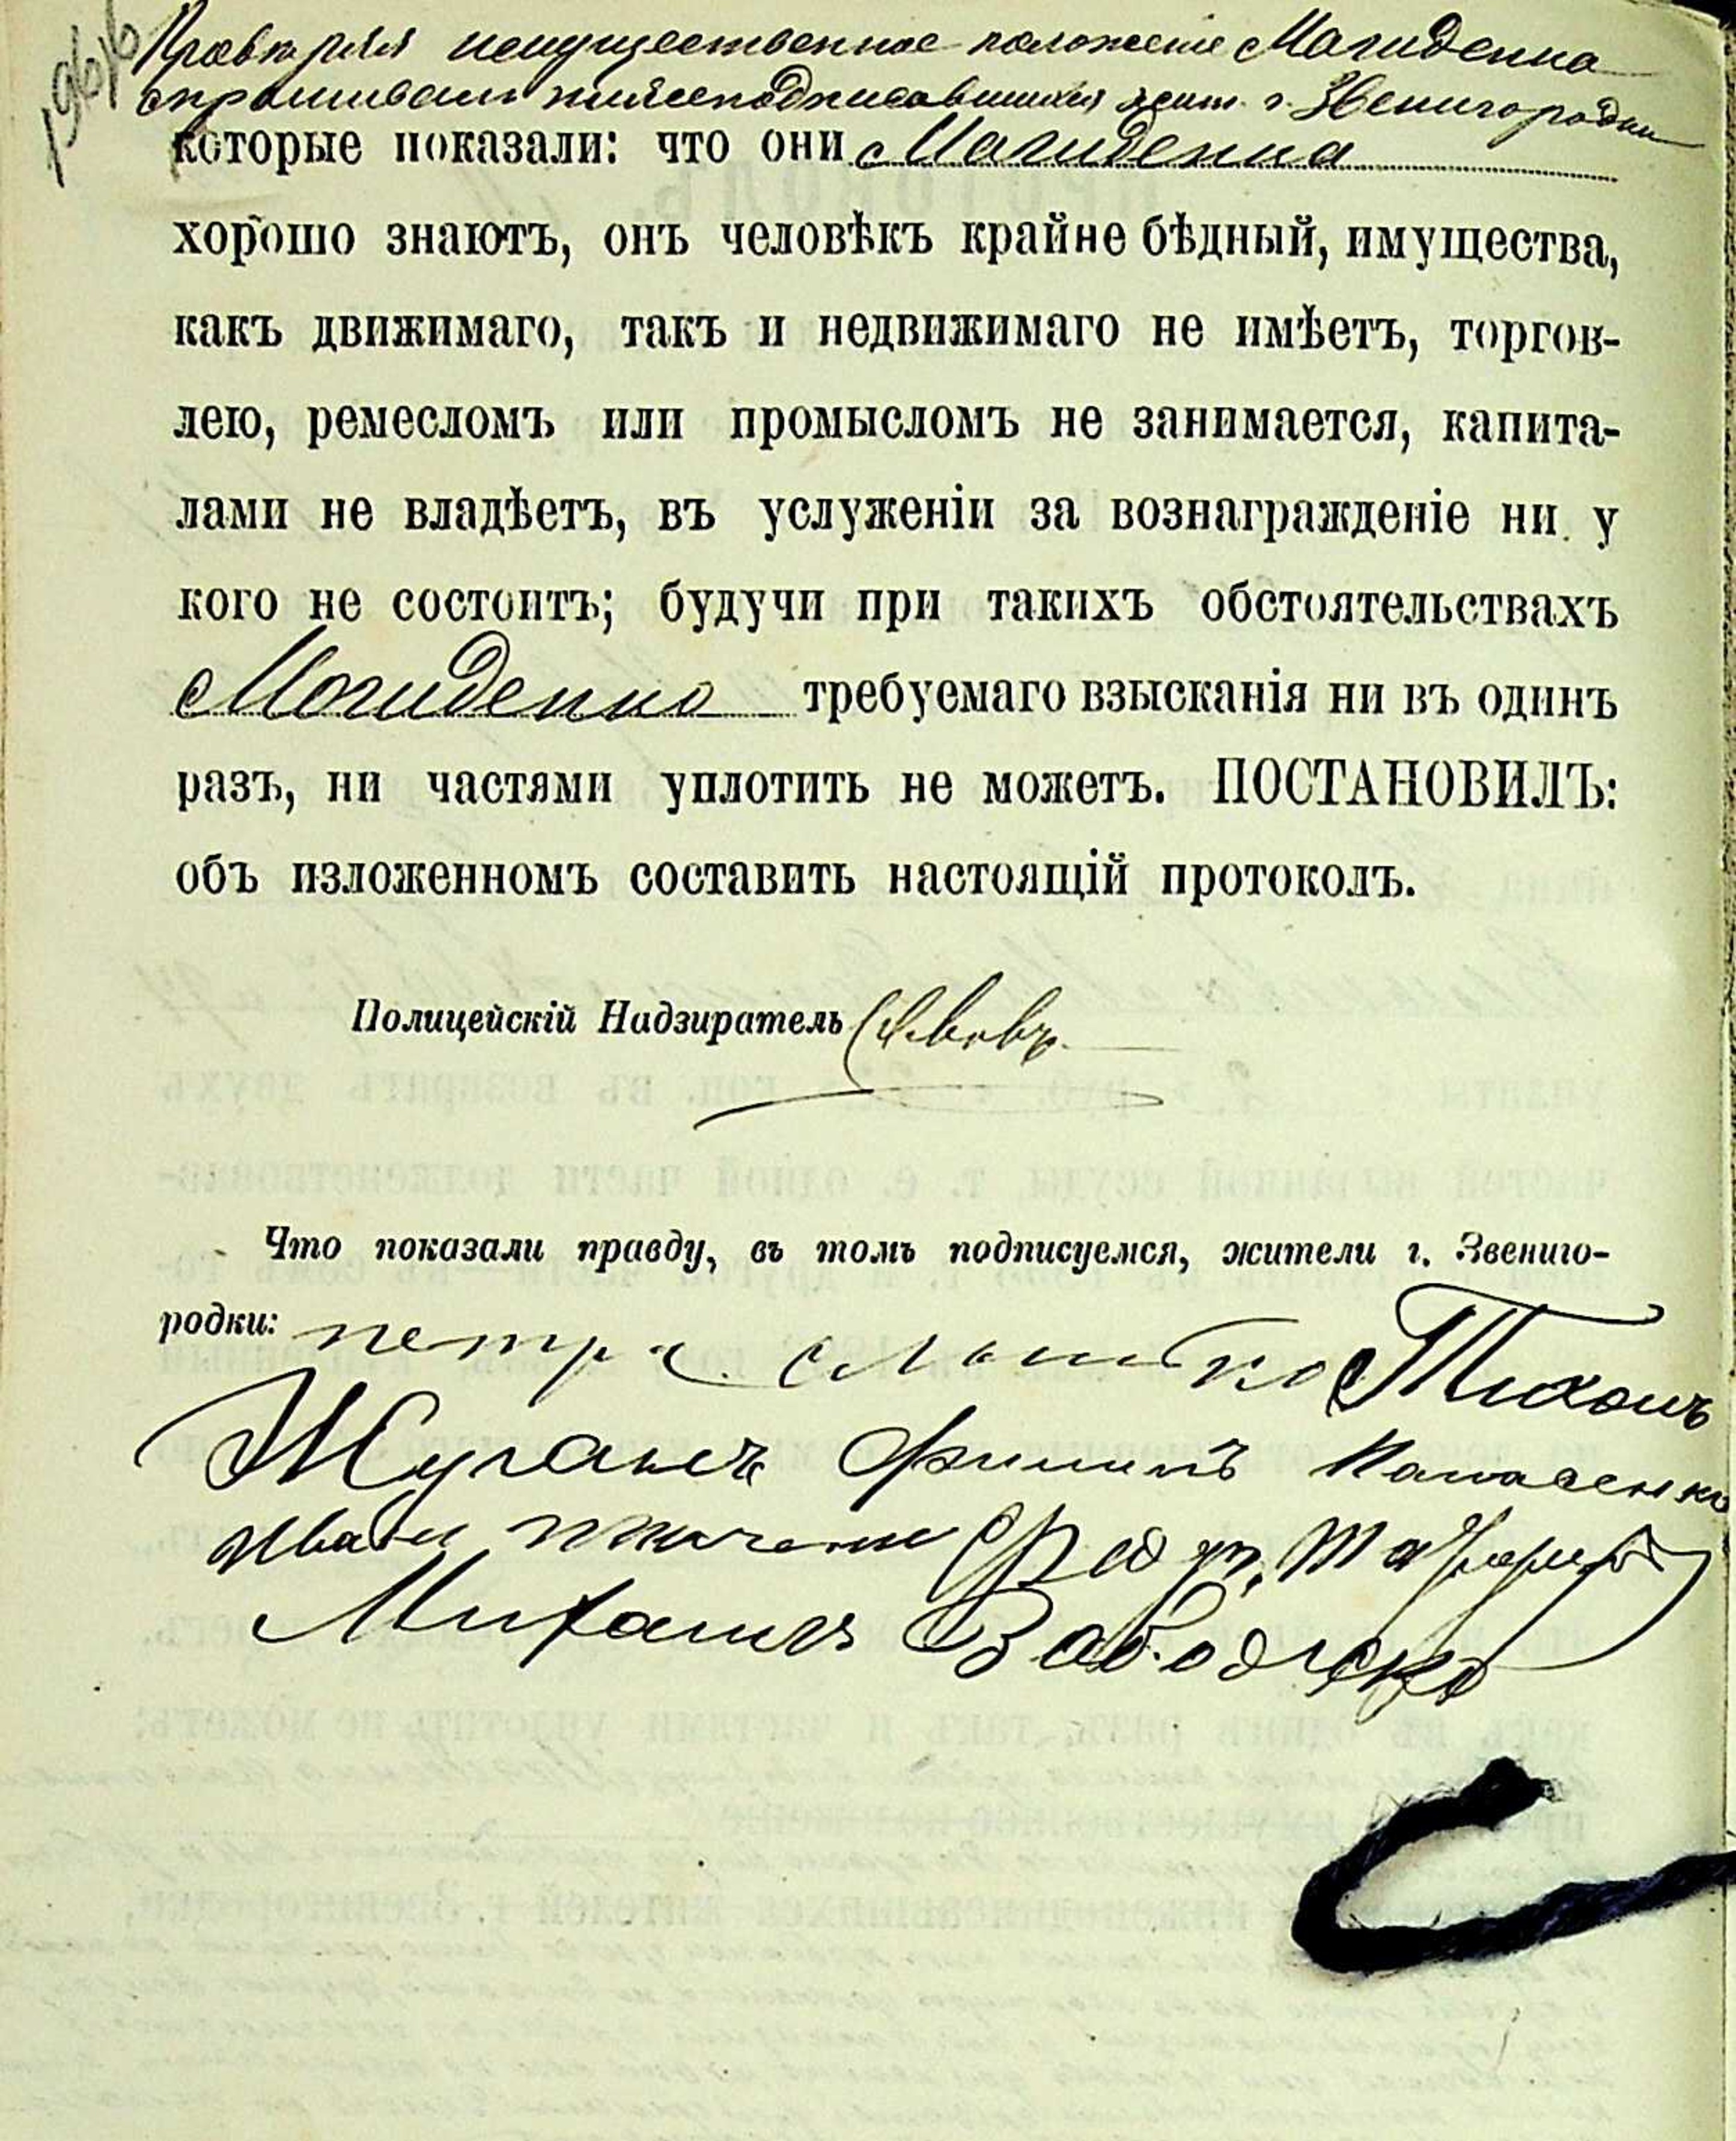 196/6
Провѣряя имущественное положеніе Магиденка
спрашивалъ нижеподписавшихся жит. г. Звенигородки
которые показали: что они Магиденка
хорошо знаютъ, онъ человѣкъ крайне бѣдный, имущества,
какъ движимаго, такъ и недвижимаго не имѣетъ, торгов-
лею, ремесломъ или промысломъ не занимается, капита-
лами не владѣетъ, въ услуженіи за вознагражденіе ни у
кого не состоитъ; будучи при такихъ обстоятельствахъ
Магиденко требуемаго взысканія ни въ одинъ
разъ, ни частями уплотить не можетъ. ПОСТАНОВИЛЪ:
объ изложенномъ составить настоящій протоколъ.
Полицейскій Надзиратель
Что показали правду, въ томъ подписуемся, жители г. Звениго-
родки: петра Тихонъ
Жуганъ Филипъ Панасенко
Иван
Михаилъ